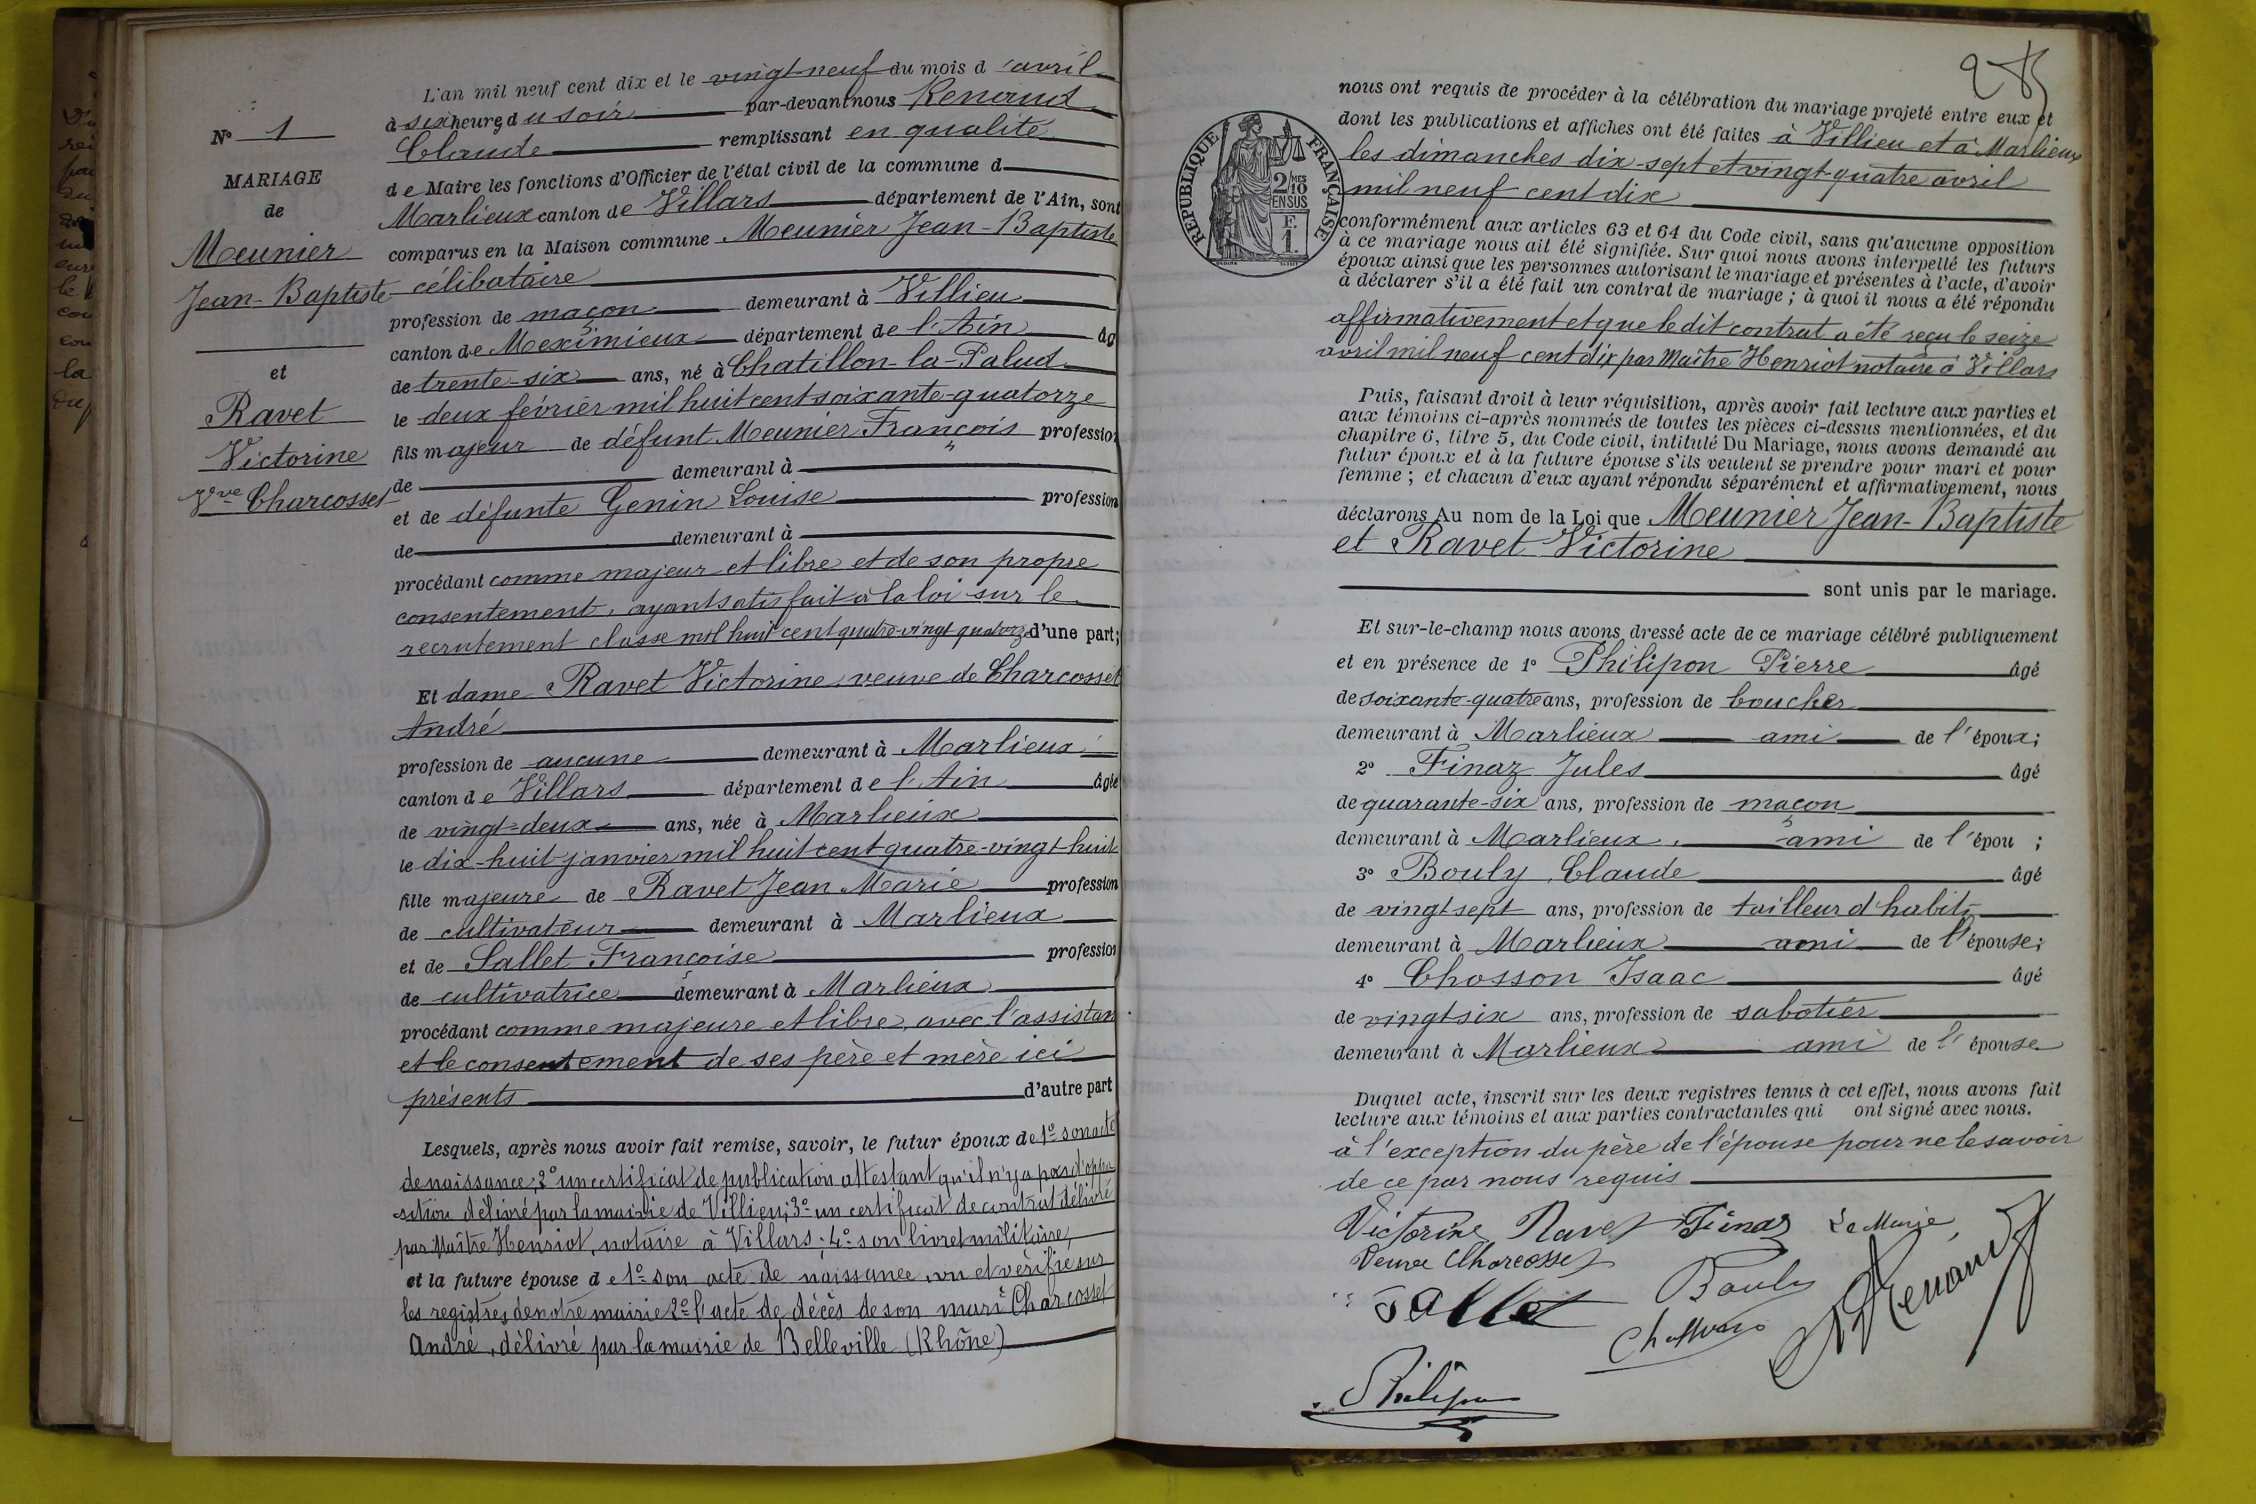 N° 1
MARIAGE
de
Meunier
Jean-Baptiste
et
Ravet
Victorine
Vve Charcosset
L'an mil neuf cent dix et le vingt-neuf du mois d'avril
à six heures du soir par-devant nous Renaud
Claude remplissant en qualité
de Maire les fonctions d'Officier de l'état civil de la commune d
Marlieux canton de Villars département de l'Ain, sont
comparus en la Maison commune Meunier Jean-Baptiste
célibataire
profession de maçon demeurant à Villieu
canton de Meximieux département de l'Ain âg
de trente-six ans, né à Chatillon-la-Palud
le deux février mil huit cent soixante-quatorze
fils majeur de défunt Meunier François profession
de demeurant à
et de défunte Genin Louise profession
de demeurant à
procédant comme majeur et libre et de son propre
consentement, ayant satisfait à la loi sur le
recrutement classe mil huit cent quatre-vingt quatorze d'une part;
Et dame Ravet Victorine veuve de Charcosset
André
profession de aucune demeurant à Marlieux
canton de Villars département de l'Ain âgée
de vingt-deux ans, née à Marlieux
le dix-huit janvier mil huit cent quatre-vingt-huit
fille majeure de Ravet Jean Marie profession
de cultivateur demeurant à Marlieux
et de Sallet Françoise profession
de cultivatrice demeurant à Marlieux
procédant comme majeure et libre, avec l'assistan
et le consentement de ses père et mère ici
présents d'autre part
Lesquels, après nous avoir fait remise, savoir, le futur époux de 1° son acte
de naissance; 2° un certificat de publication attestant qu'il n'y a pas d'oppo
sition délivré par la mairie de Villieu; 3° un certificat de contrat délivré
par Maître Henriot, notaire à Villars; 4° son livret militaire,
et la future épouse de 1° son acte de naissance, vu et vérifié sur
les registres de notre mairie 2° l'acte de décès de son mari Charcosset
André, délivré par la mairie de Belleville (Rhône)
285
RÉPUBLIQUE FRANÇAISE
2/10 MES
EN SUS
F.
1.
nous ont requis de procéder à la célébration du mariage projeté entre eux et
dont les publications et affiches ont été faites à Villieu et à Marlieux
les dimanches dix-sept et vingt-quatre avril
mil neuf cent dix
conformément aux articles 63 et 64 du Code civil, sans qu'aucune opposition
à ce mariage nous ait été signifiée. Sur quoi nous avons interpellé les futurs
époux ainsi que les personnes autorisant le mariage et présentes à l'acte, d'avoir
à déclarer s'il a été fait un contrat de mariage; à quoi il nous a été répondu
affirmativement et que le dit contrat a été reçu le seize
avril mil neuf cent dix par Maître Henriot notaire à Villars
Puis, faisant droit à leur réquisition, après avoir fait lecture aux parties et
aux témoins ci-après nommés de toutes les pièces ci-dessus mentionnées, et du
chapitre 6, titre 5, du Code civil, intitulé Du Mariage, nous avons demandé au
futur époux et à la future épouse s'ils veulent se prendre pour mari et pour
femme; et chacun d'eux ayant répondu séparément et affirmativement, nous
déclarons Au nom de la Loi que Meunier Jean-Baptiste
et Ravet Victorine
sont unis par le mariage.
Et sur-le-champ nous avons dressé acte de ce mariage célébré publiquement
et en présence de 1° Philipon Pierre âgé
de soixante-quatre ans, profession de boucher
demeurant à Marlieux ami de l'époux;
2° Finaz Jules âgé
de quarante-six ans, profession de maçon
demeurant à Marlieux, ami de l'épou ;
3° Bouly Claude âgé
de vingt sept ans, profession de tailleur d'habits
demeurant à Marlieux ami de l'épouse;
4° Chosson Isaac âgé
de vingt six ans, profession de sabotier
demeurant à Marlieux ami de l'épouse
Duquel acte, inscrit sur les deux registres tenus à cet effet, nous avons fait
lecture aux témoins et aux parties contractantes qui ont signé avec nous.
à l'exception du père de l'épouse pour ne le savoir
de ce par nous requis
Victorine Ravet Finaz Le Maire,
Veuve Charcosset
Sallet Bouly Renaud
Chosson
Philipon